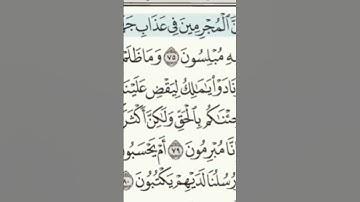 نَّ ٱلْمُجْرِمِينَ فِى عَذَابِ جَهَ
هِ مُبْلِسُونَ ٧٥ وَمَا ظَلَمْ
نَادَوْا۟ يَٰمَٰلِكُ لِيَقْضِ عَلَيْنَا
جِئْنَٰكُم بِٱلْحَقِّ وَلَٰكِنَّ أَكْثَرَ
نَّا مُبْرِمُونَ ٧٩ أَمْ يَحْسَبُو
رُسُلُنَا لَدَيْهِمْ يَكْتُبُونَ ٨٠